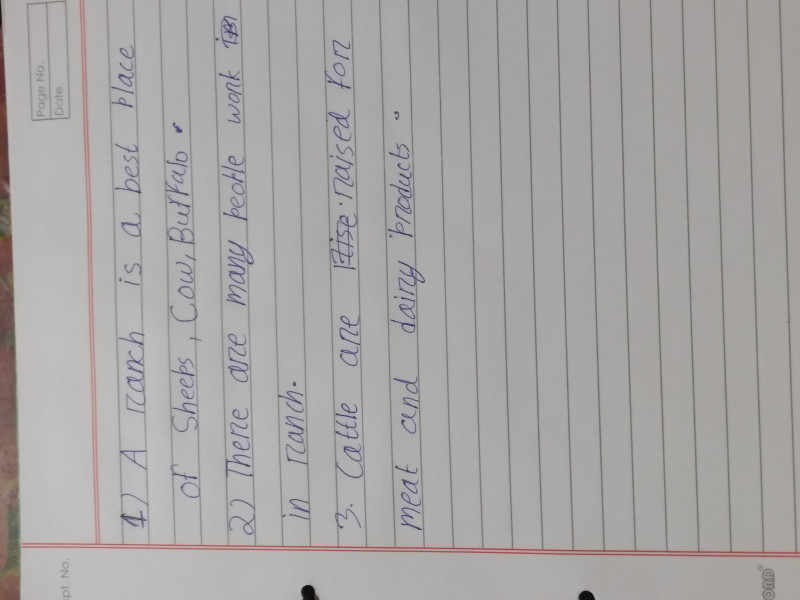 Page No.
Date.
1) A ranch is a best place
of Sheeps, Cow, Buffalo.
2) There are many people work in
in ranch.
3. Cattle are raised for
meat and dairy products.
pt. No.
ORD